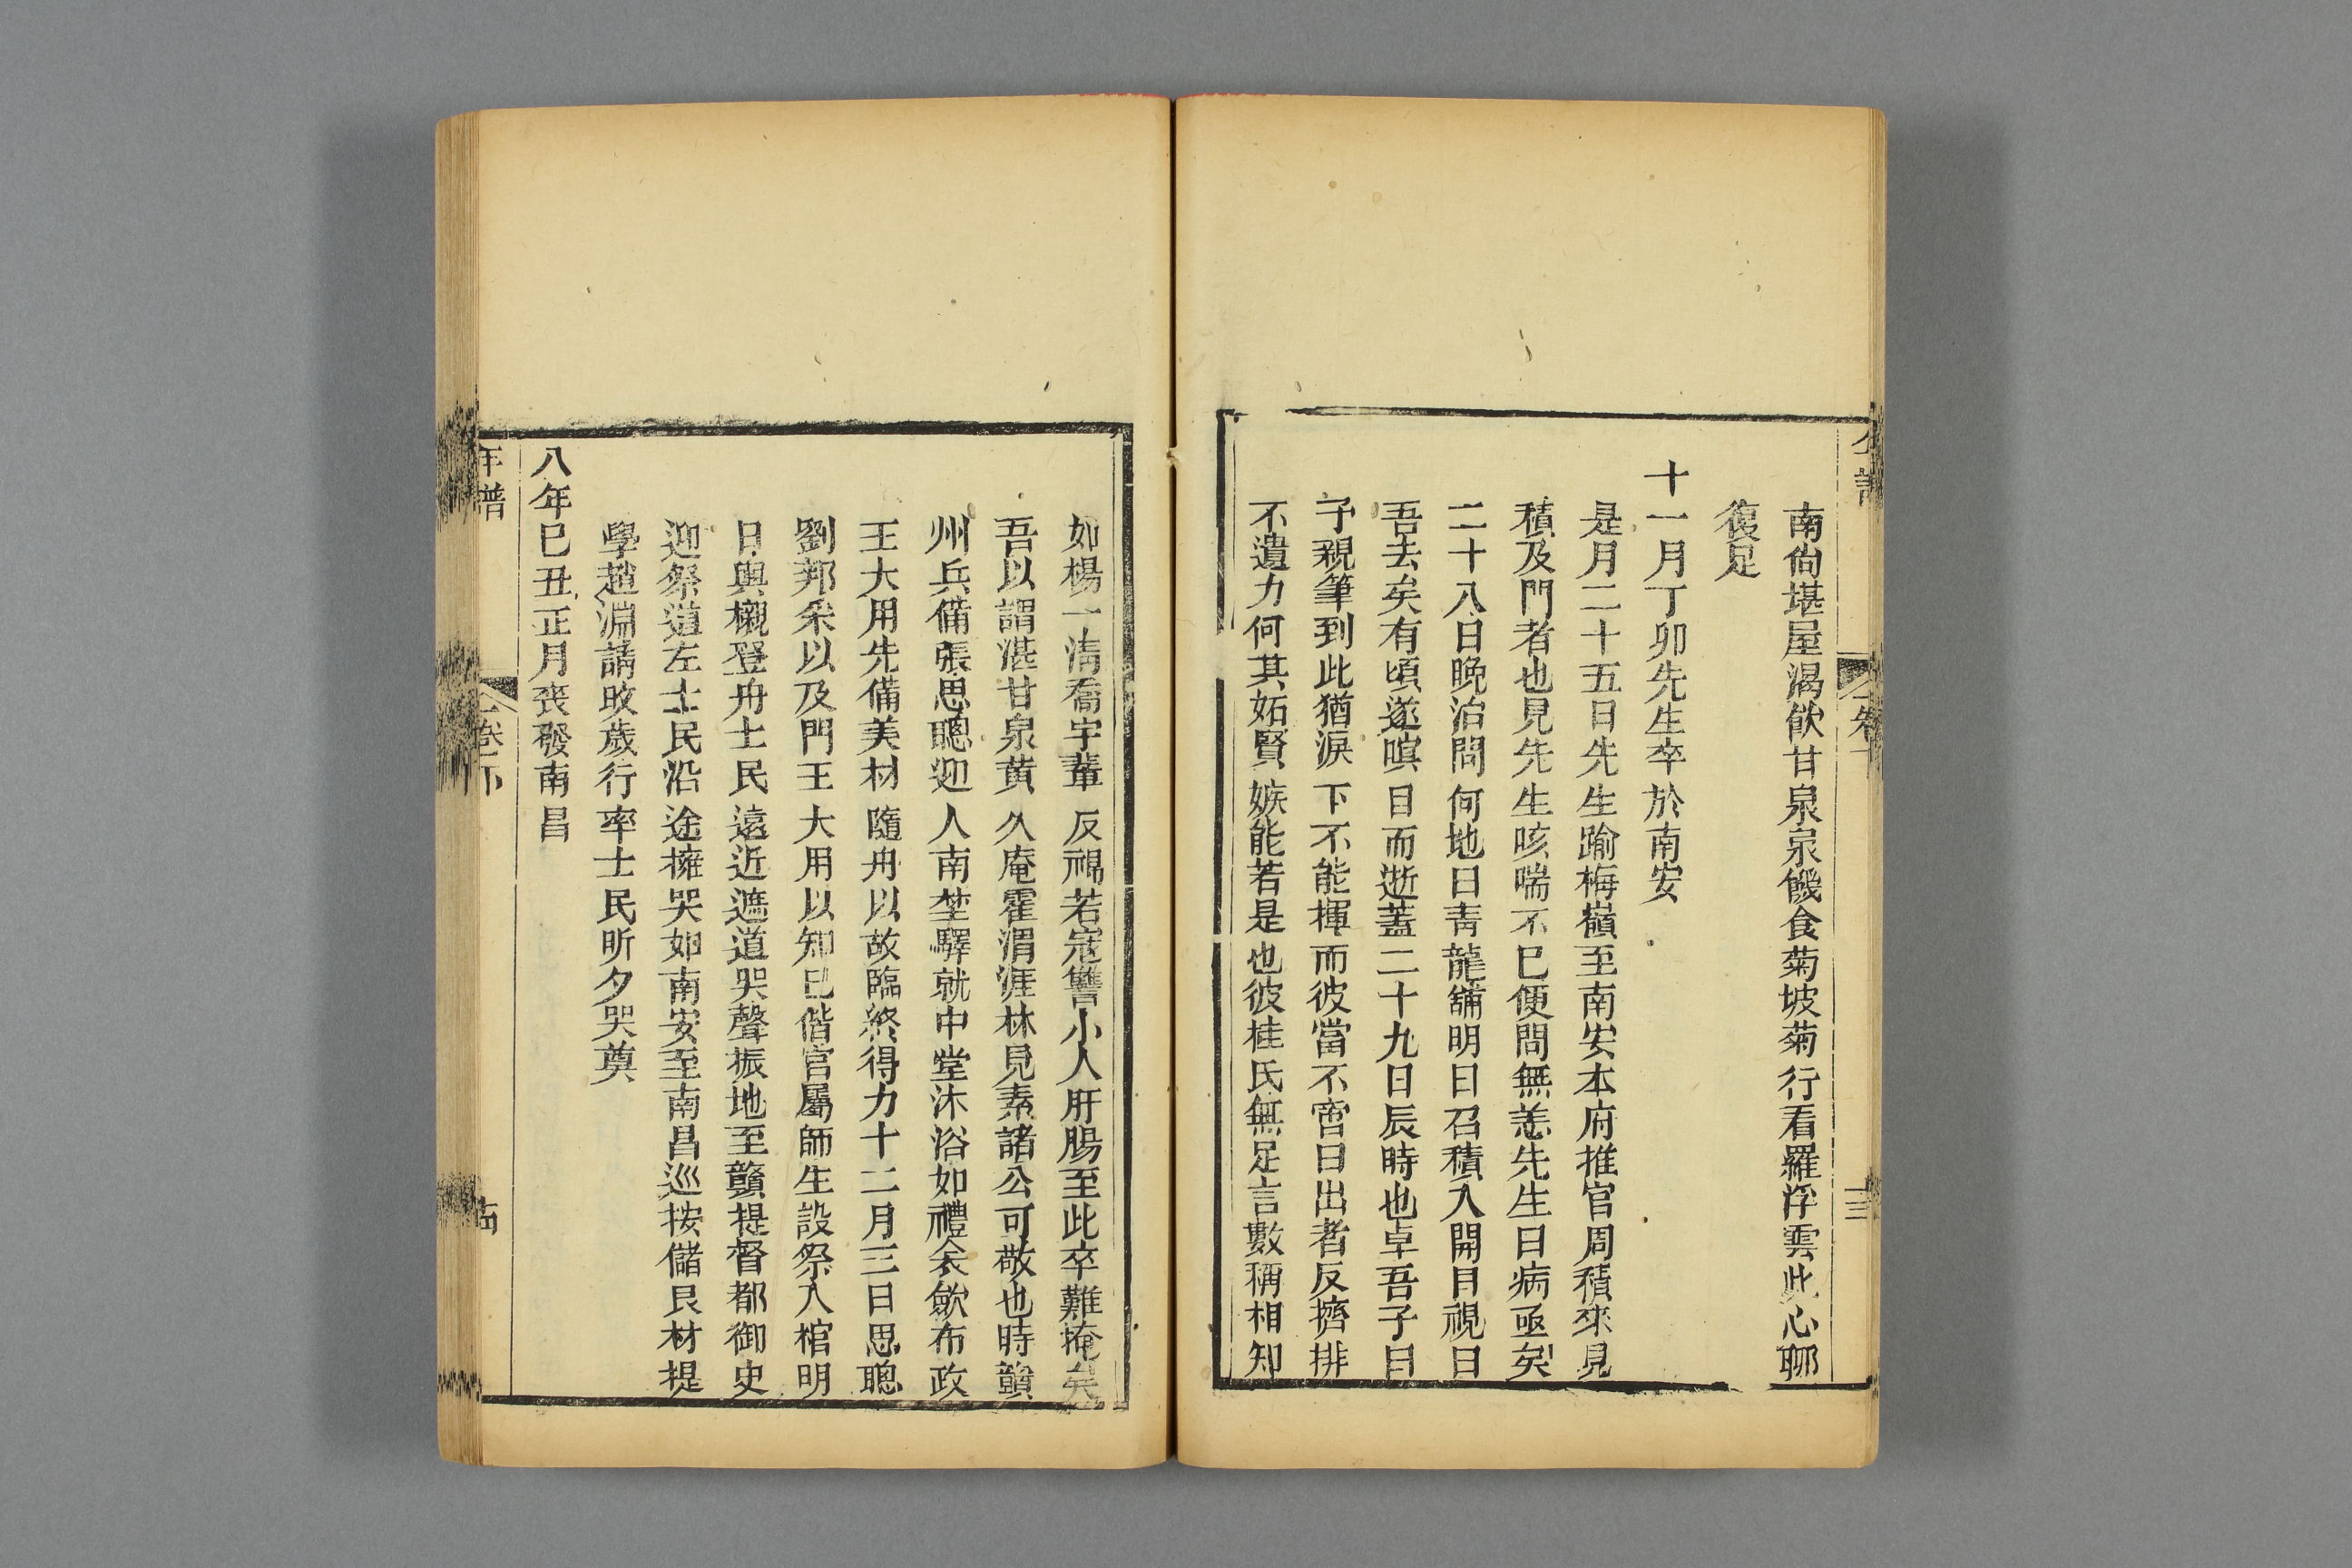 南尙堪屋渴飮甘泉泉饑食菊坡菊行看羅浮雲此心聊
復足
十一月丁卯先生卒於南安
是月二十五日先生踰梅嶺至南安本府推官周積來見
積及門者也見先生咳喘不已便問無恙先生曰病亟矣
二十八日晚泊問何地曰靑龍舖明日召積入開目視曰
吾去矣有頃遂瞑目而逝蓋二十九日辰時也卓吾子曰
予親筆到此猶淚下不能揮而彼當不啻曰出者反擠排
不遺力何其妬賢嫉能若是也彼桂氏無足言數稱相知
如楊一淸喬宇輩反視若寇讐小人肝腸至此卒難掩矣
吾以謂湛甘泉黃久庵霍渭涯林見素諸公可敬也時贛
州兵備張思聰迎入南埜驛就中堂沐浴如禮衾歛布政
王大用先備美材隨舟以故臨終得力十二月三日思聰
劉邦采以及門王大用以知己偕官屬師生設祭入棺明
日輿櫬登舟士民遠近遮道哭聲振地至贛提督都御史
迎祭道左士民沿途擁哭如南安至南昌巡按儲良材提
學趙淵請改歲行率士民昕夕哭奠
八年巳丑正月喪發南昌
年譜